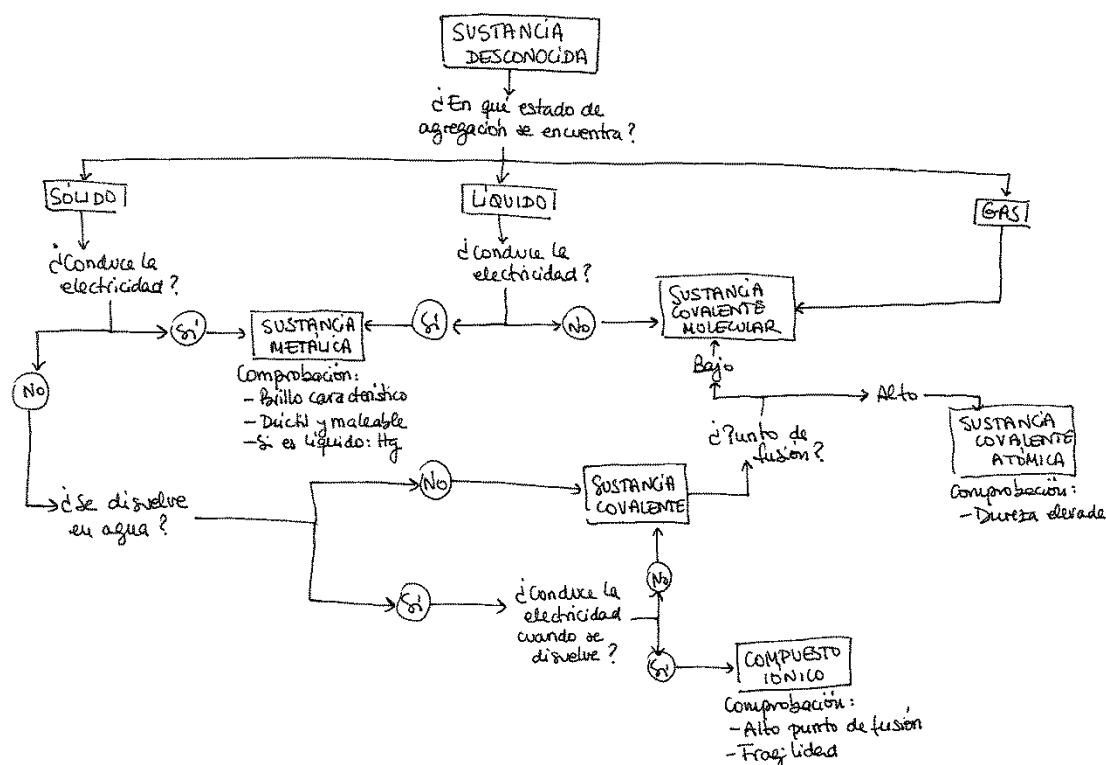 SUSTANCIA
DESCONOCIDA
¿En qué estado de
agregación se encuentra?
SÓLIDO
LÍQUIDO
GAS
¿Conduce la
electricidad?
¿Conduce la
electricidad?
SUSTANCIA
COVALENTE
MOLECULAR
Sí
SUSTANCIA
METÁLICA
Sí
No
No
Comprobación:
- Brillo característico
- Dúctil y maleable
- Si es líquido: Hg
Bajo
Alto
¿Punto de
fusión?
SUSTANCIA
COVALENTE
ATÓMICA
Comprobación:
- Dureza elevada
¿Se disuelve
en agua?
No
SUSTANCIA
COVALENTE
Sí
¿Conduce la
electricidad
cuando se
disuelve?
No
Sí
COMPUESTO
IÓNICO
Comprobación:
- Alto punto de fusión
- Fragilidad